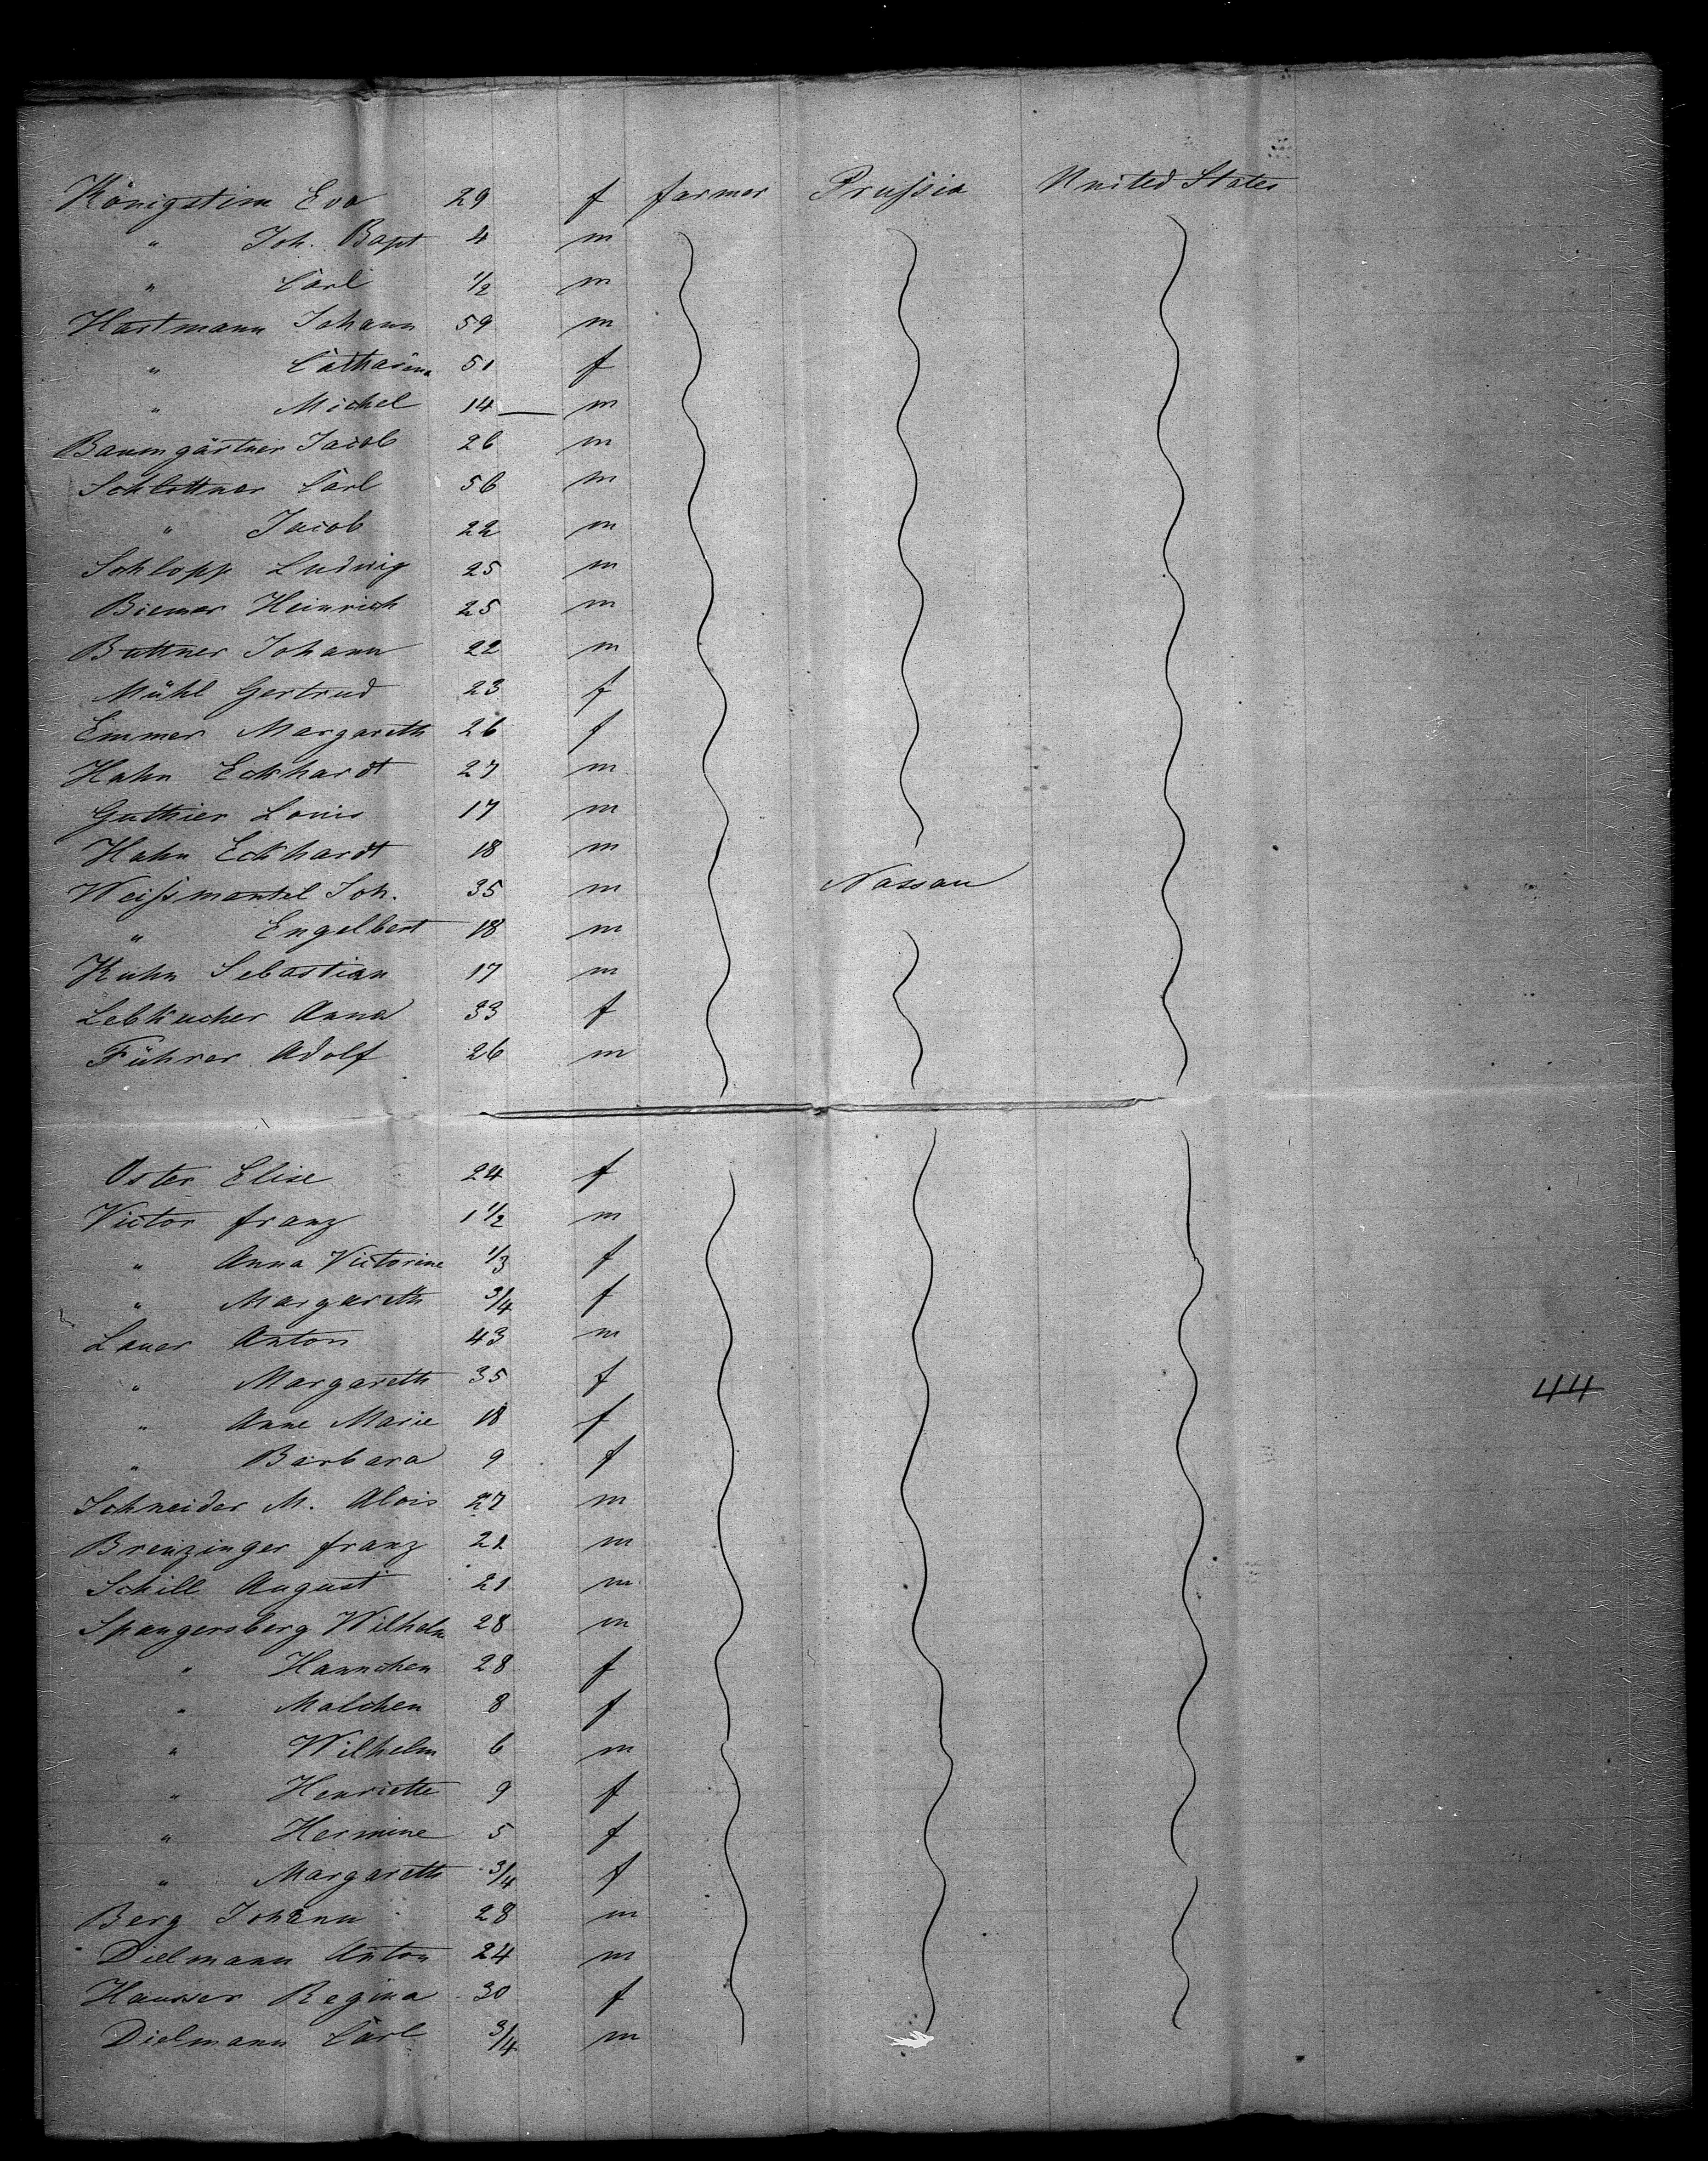 Königstein Eva 29 f farmer Prussia United States
" Joh. Bapt 4 m
" Carl 1/2 m
Hartmann Johann 59 m
" Catharina 51 f
" Michel 14 m
Baumgärtner Jacob 26 m
Schlottner Carl 56 m
" Jacob 22 m
Schlopp Ludwig 25 m
Biemer Heinrich 25 m
Buttner Johann 22 m
Mühl Gertrud 23 f
Emmer Margareth 26 f
Hahn Eckhardt 27 m
Guthier Louis 17 m
Hahn Eckhardt 18 m
Weißmantel Joh. 35 m Nassau
" Engelbert 18 m
Kuhn Sebastian 17 m
Lebkucher Anna 33 f
Führer Adolf 26 m
Oster Elise 24 f
Victor franz 1 1/2 m
" Anna Victorine 1/3 f
" Margareth 3/4 f
Lauer Anton 43 m
" Margareth 35 f
44
" Anne Marie 18 f
" Barbara 9 f
Schneider M. Alois 27 m
Brenzinger franz 21 m
Schill August 21 m
Spangersberg Wilhelm 28 m
" Hannchen 28 f
" Malchen 8 f
" Wilhelm 6 m
" Henriette 9 f
" Hermine 5 f
" Margareth 3/4 f
Berg Johann 28 m
Dielmann Anton 24 m
Hauser Regina 30 f
Dielmann Carl 3/4 m